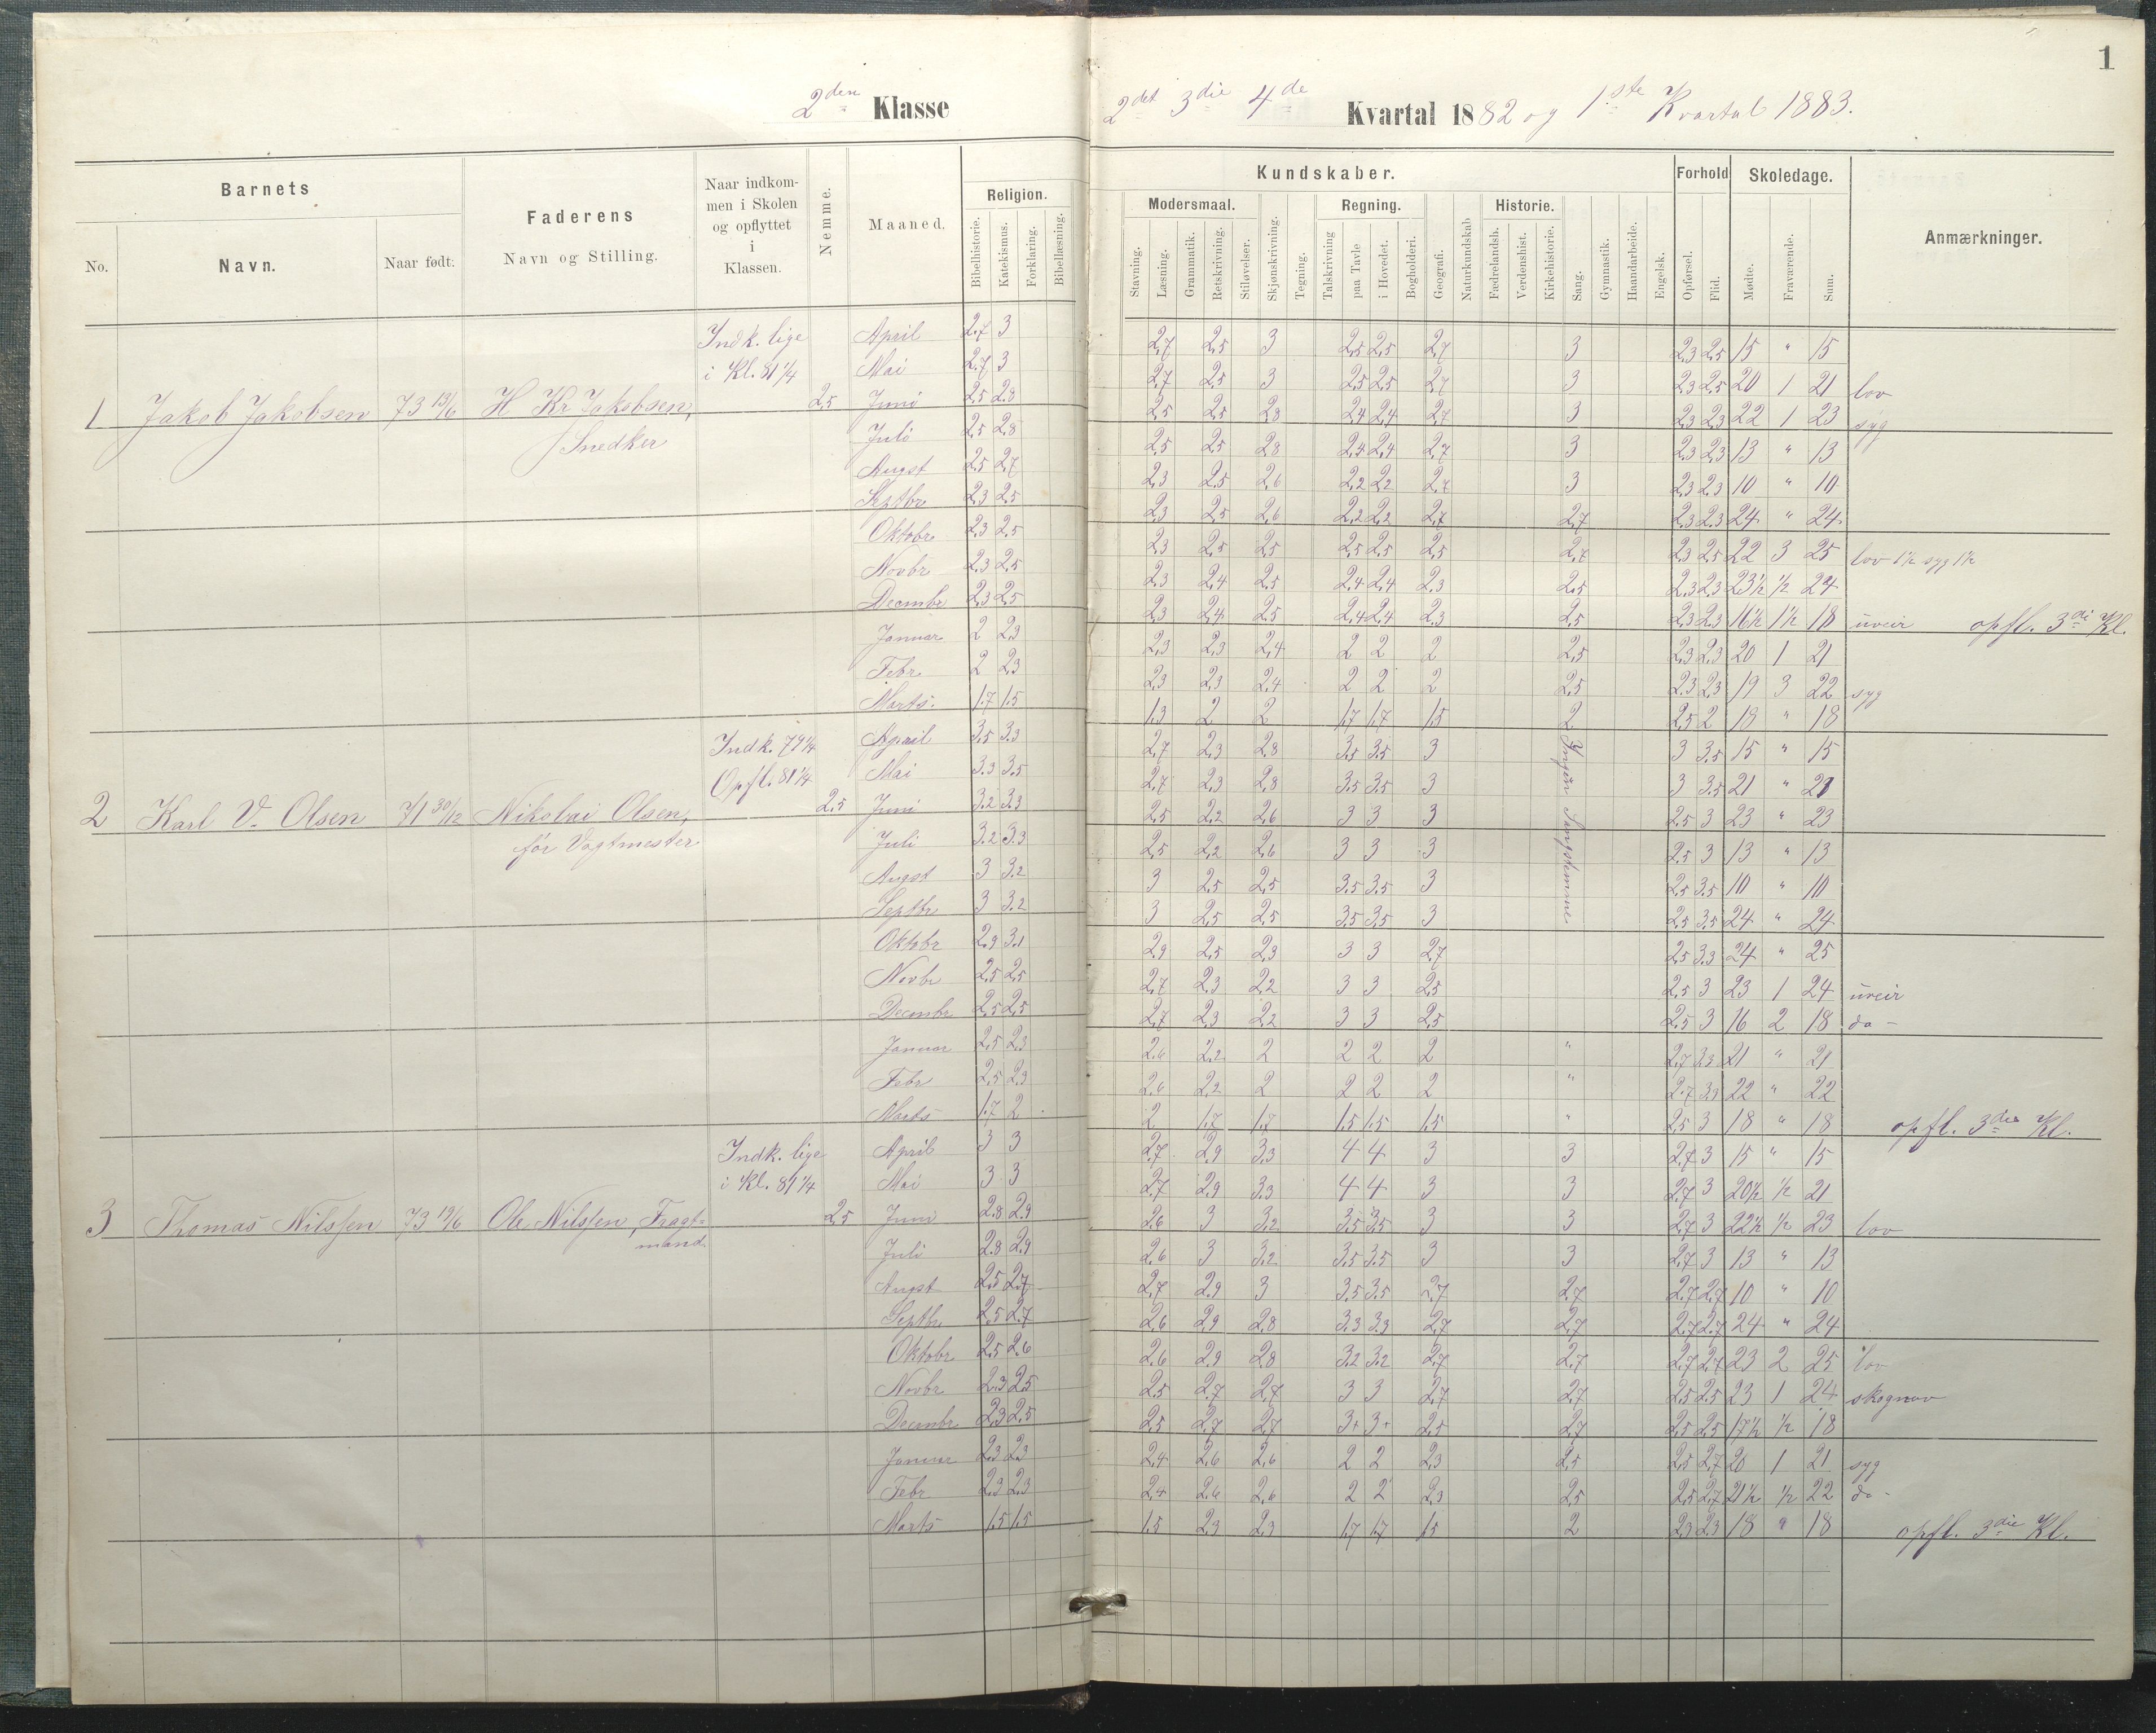 1
2den Klasse 2det 3die 4de Kvartal 1882 og 1ste Kvartal 1883.
Barnets
No. Navn. Naar født.
Faderens
Navn og Stilling.
Naar indkom-
men i Skolen
og opflyttet
i
Klassen.
Nemme.
Maaned.
Religion.
Bibelhistorie. Katekismus. Forklaring. Bibellæsning.
Kundskaber.
Modersmaal. Regning. Historie.
Stavning. Læsning. Grammatik. Retskrivning. Stiløvelser. Skjønskrivning. Tegning. Talskrivning paa Tavle i Hovedet. Bogholderi. Geografi. Naturkundskab Fædrelandsh. Verdenshist. Kirkehistorie. Sang. Gymnastik. Haandarbeide. Engelsk.
Forhold
Opførsel. Flid.
Skoledage.
Mødte. Fraværende. Sum.
Anmærkninger.
1 Jakob Jakobsen 73 13/6 H Kr Jakobsen,
Snedker
Indk. lige
i Kl. 81 1/4
2,5
April 2.7 3 2,7 2,5 3 2,5 2,5 2,7 3 2,3 2,5 15 " 15
Mai 2.7 3 2,7 2,5 3 2,5 2,5 2,7 3 2,3 2,5 20 1 21 lov
Juni 2,5 2.8 2,5 2,5 2,8 2,4 2,4 2,7 3 2,3 2,3 22 1 23 syg
Juli 2,5 2,8 2,5 2,5 2,8 2,4 2,4 2,7 3 2,3 2,3 13 " 13
Augst 2,5 2,7 2,3 2,5 2,6 2,2 2,2 2,7 3 2,3 2,3 10 " 10
Septbr 2,3 2,5 2,3 2,5 2,6 2,2 2,2 2,7 2,7 2,3 2,3 24 " 24
Oktobr 2,3 2,5 2,3 2,5 2,5 2,5 2,5 2,5 2,7 2,3 2,5 22 3 25 lov 1 1/2 syg 1 1/2
Novbr 2,3 2,5 2,3 2,4 2,5 2,4 2,4 2,3 2,5 2,3 2,3 23 1/2 1/2 24
Decembr 2,3 2,5 2,3 2,4 2,5 2,4 2,4 2,3 2,5 2,3 2,3 16 1/2 1 1/2 18 uveir opfl. 3die Kl.
Januar 2 2,3 2,3 2,3 2,4 2 2 2 2,5 2,3 2,3 20 1 21
Febr 2 2,3 2,3 2,3 2,4 2 2 2 2,5 2,3 2,3 19 3 22 syg
Marts 1,7 1,5 1,3 2 2 1,7 1,7 1,5 2 2,5 2 18 " 18
2 Karl V. Olsen 71 30/12 Nikolai Olsen,
før Vagtmester
Indk. 79 1/4
Opfl. 81 1/4
2,5
Ingen Sangstemme
April 3,5 3.3 2,7 2,3 2,8 3,5 3,5 3 3 3.5 15 " 15
Mai 3.3 3.5 2,7 2,3 2,8 3.5 3.5 3 3 3.5 21 " 21
Juni 3.2 3.3 2,5 2,2 2,6 3 3 3 2,5 3 23 " 23
Juli 3.2 3.3 2,5 2,2 2,6 3 3 3 2.5 3 13 " 13
Augst 3 3.2 3 2,5 2,5 3.5 3.5 3 2,5 3.5 10 " 10
Septbr 3 3.2 3 2,5 2,5 3.5 3.5 3 2,5 3.5 24 " 24
Oktobr 2,9 3.1 2,9 2,5 2,3 3 3 2,7 2,5 3.3 24 " 25
Novbr 2,5 2,5 2,7 2,3 2,2 3 3 2,5 2,5 3 23 1 24 uveir
Decembr 2,5 2,5 2,7 2,3 2,2 3 3 2,5 2,5 3 16 2 18 do -
Januar 2,5 2,3 2,6 2,2 2 2 2 2 " 2,7 3.3 21 " 21
Febr 2,5 2,3 2,6 2,2 2 2 2 2 " 2,7 3.3 22 " 22
Marts 1.7 2 2 1,7 1,7 1,5 1,5 1,5 " 2,5 3 18 " 18 opfl. 3die Kl.
3 Thomas Nilssen 73 19/6 Ole Nilssen, Fragt=
mand
Indk. lige
i Kl. 81 1/4
2,5
April 3 3 2,7 2,9 3,3 4 4 3 3 2,7 3 15 " 15
Mai 3 3 2,7 2,9 3.3 4 4 3 3 2,7 3 20 1/2 1/2 21
Juni 2.8 2.9 2,6 3 3.2 3.5 3.5 3 3 2,7 3 22 1/2 1/2 23 lov
Juli 2.8 2.9 2,6 3 3.2 3.5 3.5 3 3 2,7 3 13 " 13
Augst 2,5 2,7 2,7 2,9 3 3.5 3.5 2,7 2,7 2,7 2,7 10 " 10
Septbr 2,5 2,7 2,6 2,9 2,8 3.3 3.3 2,7 2,7 2,7 2,7 24 " 24
Oktobr 2,5 2,6 2,6 2,9 2,8 3.2 3.2 2,7 2,7 2,7 2,7 23 2 25 lov
Novbr 2,3 2,5 2,5 2,7 2,7 3 3 2,7 2,7 2,5 2,5 23 1 24
Decembr 2,3 2,5 2,5 2,7 2,7 3+ 3+ 2,5 2,7 2,5 2,5 17 1/2 1/2 18
Januar 2,3 2,3 2,4 2,6 2,6 2 2 2,3 2,5 2,5 2,7 20 1 21 syg
Febr 2,3 2,3 2,4 2,6 2,6 2 2 2,3 2,5 2,5 2,7 21 1/2 1/2 22 do -
Marts 1,5 1,5 1,5 2,3 2,3 1,7 1,7 1,5 2 2,3 2,3 18 " 18 opfl. 3die Kl.